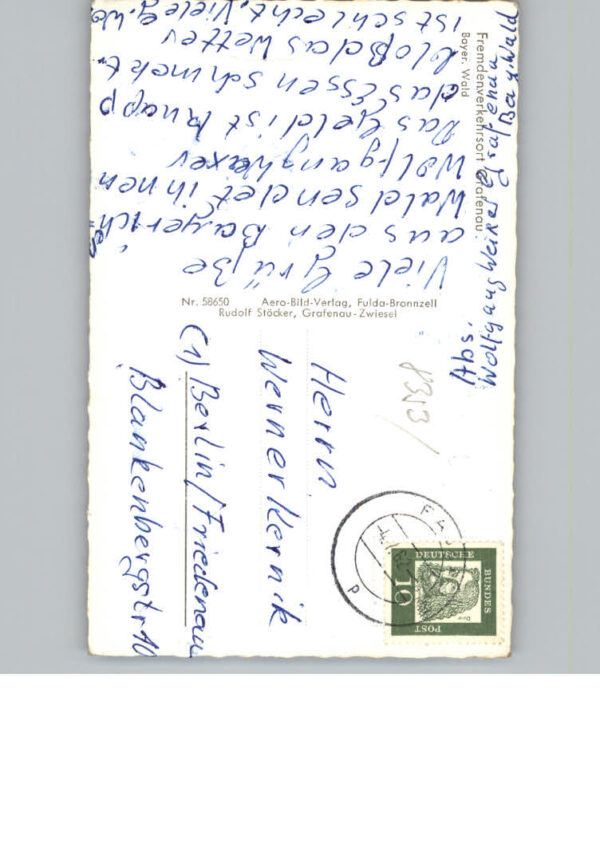 Fremdenverkehrsort Grafenau
Bayer. Wald
Viele Grüße
aus den Bayerisch-
en
Wald sendet ihnen
Wolfgang
Das Geld ist knapp
das Essen schmekt
bloß das Wetter
ist schlecht, Viele g. Wo
Abs.
Wolfgang Grafenau
Bay. Wald
Nr. 58650 Aero-Bild-Verlag, Fulda-Bronnzell
Rudolf Stöcker, Grafenau-Zwiesel
8353/
DEUTSCHE
BUNDES
POST
10
Herrn
Werner Kernik
(1) Berlin/Friedenau
Blankenbergstr 10